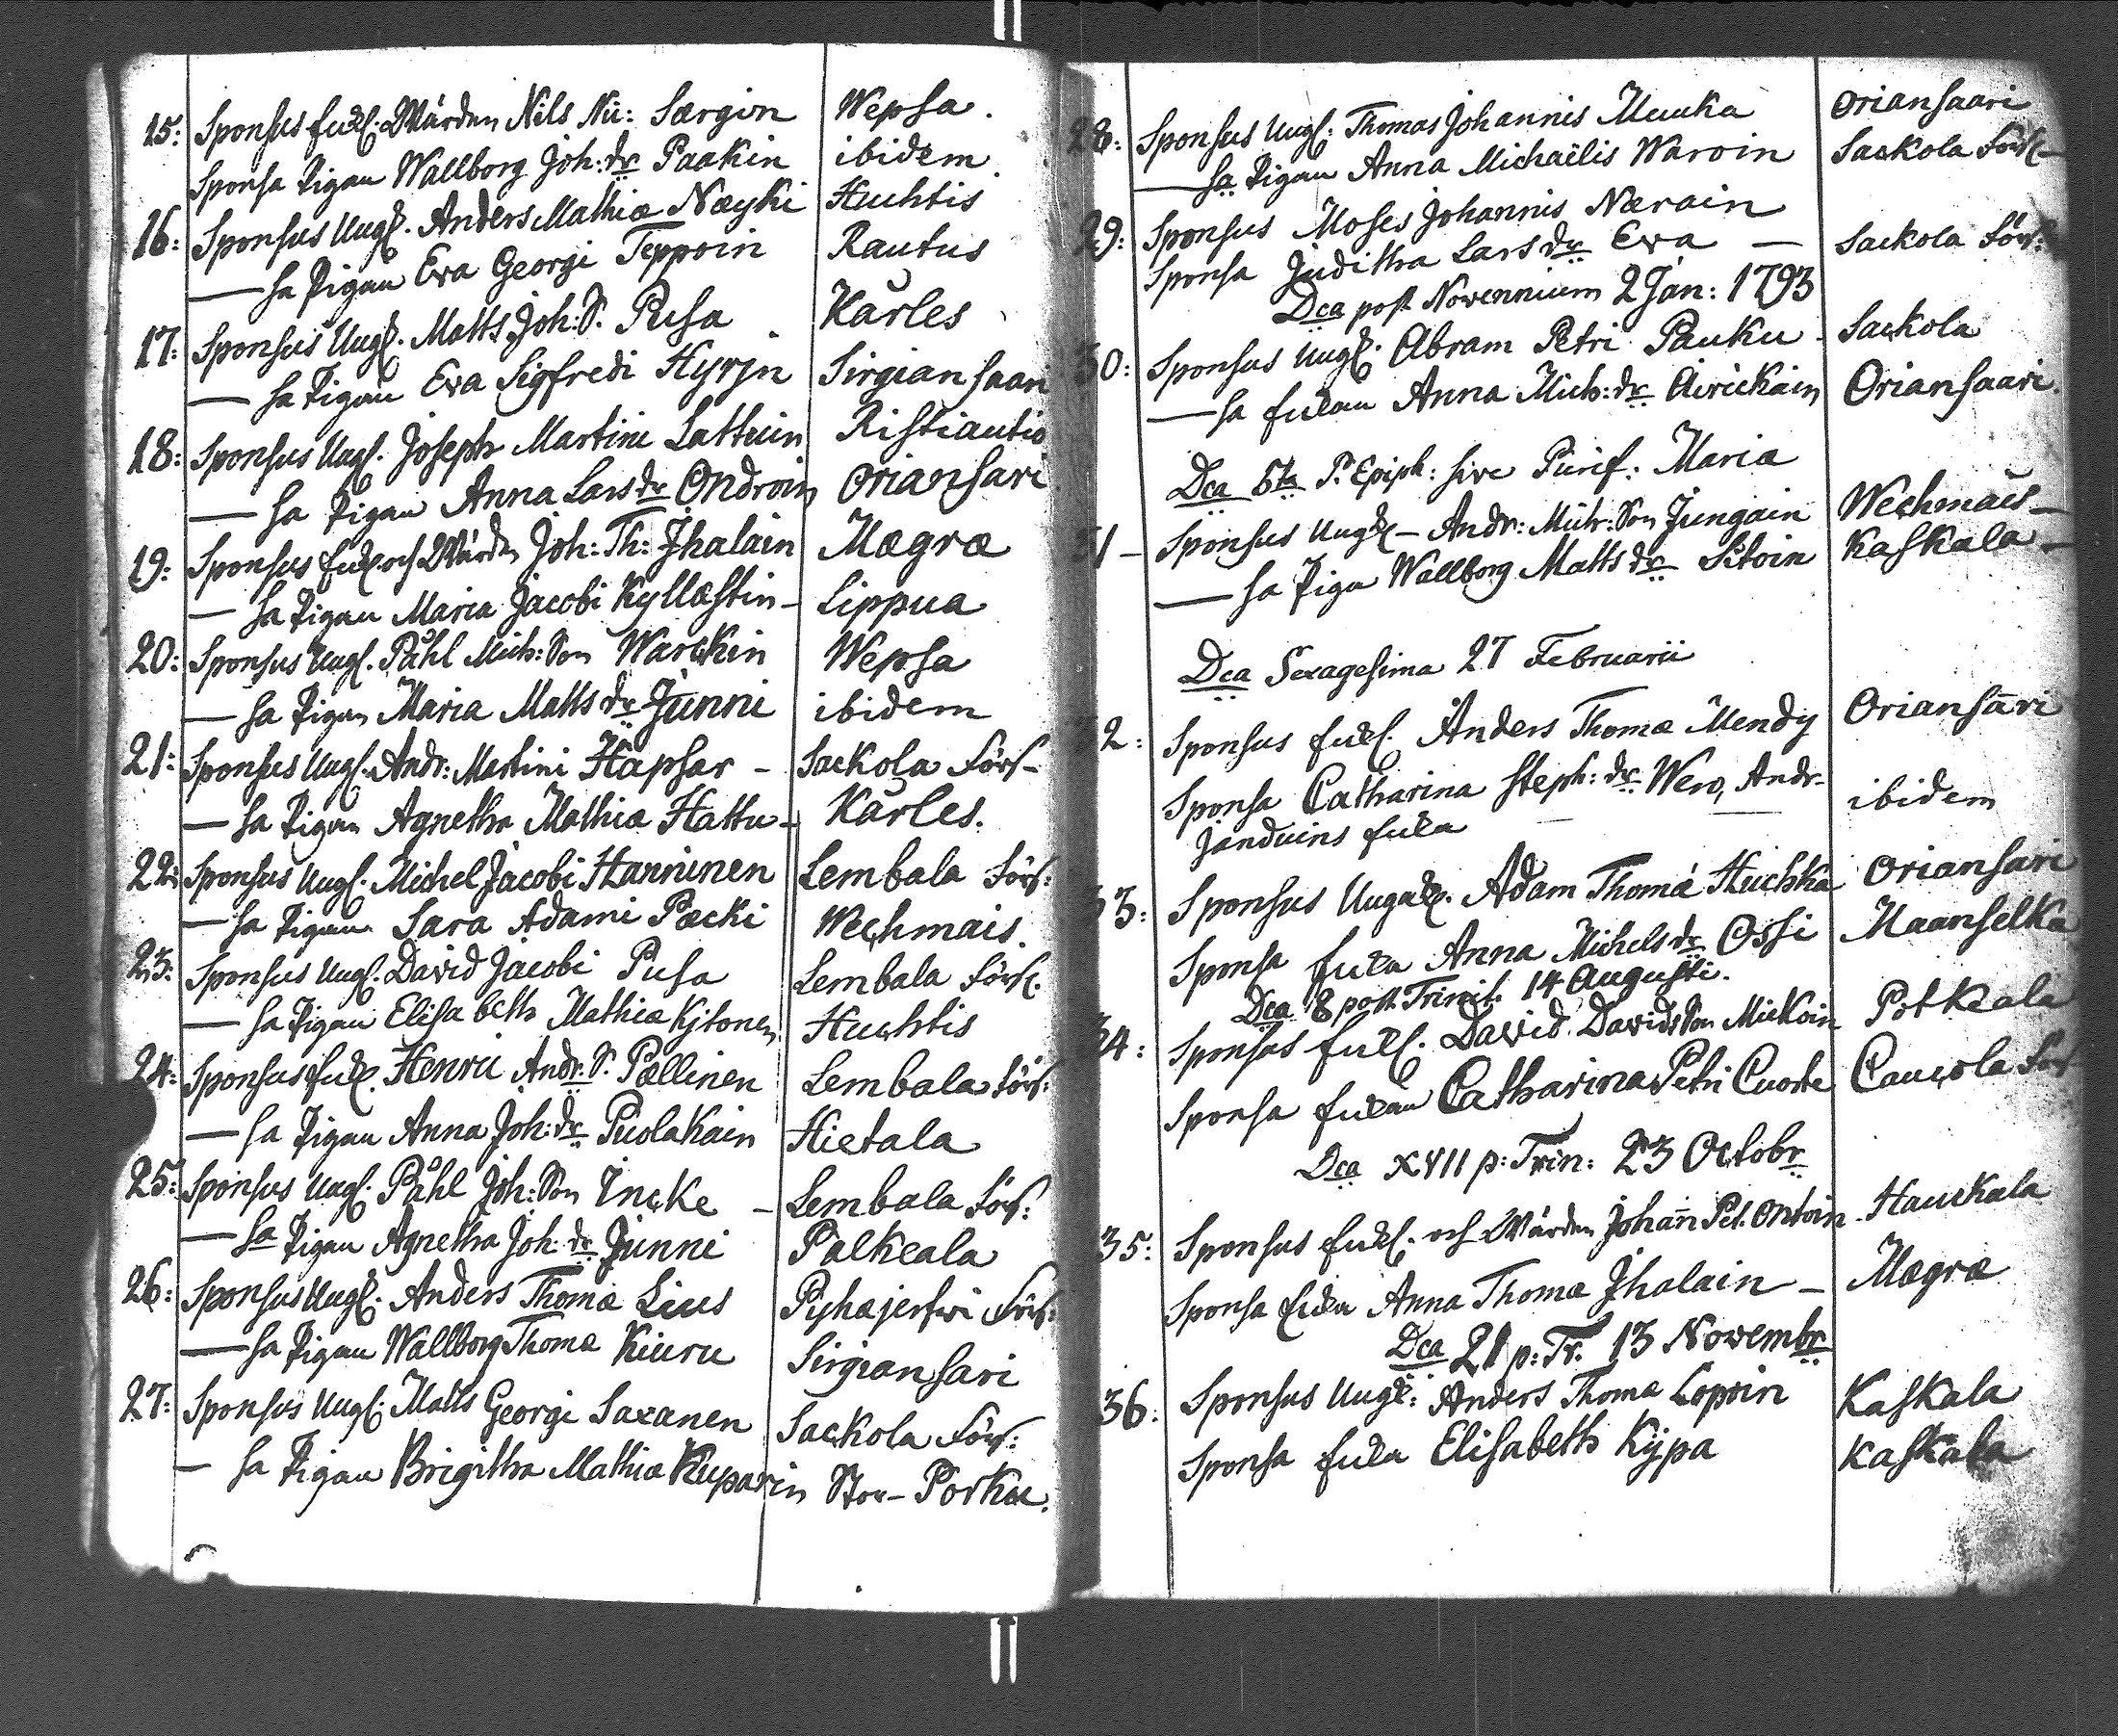 15: Sponsus Enkl. Wärden Nils Ni: Særgin Wepsa.
Sponsa Pigan Wallborg Joh: dr Paakin ibidem
16: Sponsus Ungk. Anders Mathiæ Næyki Huhtis
— sa Pigan Eva Georgi Teppoin Rautus
17: Sponsus Ungk. Matts Joh: S. Pusa Kårles
— sa Pigan Eva Sigfredi Hyrjn Sirgiansaari
18: Sponsus Ungk. Joseph Martini Lattuin Ristiautio
— sa Pigan Anna Lars dr Ondroin Oriansari
19: Sponsus Enkl. och Wärden Joh: Th: Jhalain Mægræ
— sa Pigan Maria Jacobi Kyllæstin — Lippua
20: Sponsus Ungk. Påhl Mich: Son Warckin Wepsa
— sa Pigan Maria Matts dr Junni ibidem
21: Sponsus Ungk. Andr: Martini Hapsar — Sackola Förs—
— sa Pigan Agnetha Mathiæ Hattu — Kårles.
22: Sponsus Ungk. Michel Jacobi Hanninen Lembala Förs:
— sa Pigan Sara Adami Pæcki Wechmais.
23: Sponsus Ungk. David Jacobi Pusa Lembala Förs.
— sa Pigan Elisabeth Mathiæ Kjtonen Huchtis
24: Sponsus Enkl. Henric Andr. S. Pællinen Lembala Förs:
— sa Pigan Anna Joh: dr Puolakain Hietala
25: Sponsus Ungk. Påhl Joh: Son Incke — Lembala Förs:
— sa Pigan Agnetha Joh: dr Junni Palkeala
26: Sponsus Ungk. Anders Thomæ Lius Pyhajerfwi Förs:
— sa Pigan Wallborg Thomæ Kiuru Sirgiansari
27: Sponsus Ungk. Matts Georgi Saxanen Sackola Förs:
— sa Pigan Brigitha Mathiæ Kuparin Stor-Porku.
28: Sponsus Ungk: Thomas Johannis Muuka Oriansaari
— sa Pigan Anna Michaëlis Waroin Sackola Förs—
29: Sponsus Moses Johannis Nærain
Sponsa Juditha Lars dr Eva — Sackola Förs:
Dca post Novennium 2 Jan: 1793
30: Sponsus Ungk. Abram Petri Pauku Sackola
— sa Enkan Anna Mich: dr Airickain Oriansaari.
Dca 5ta P. Epiph: sive Purif: Maria
31 — Sponsus Ungk — Andr: Mich: Son Jungain Wechmais —
— sa Piga Wallborg Matts dr Sitoin Kaskala —
Dca Sexagesima 27 Februarii
32: Sponsus Enkl. Anders Thomæ Mendy Oriansari
Sponsa Catharina Steph: dr Wew, Andr- ibidem
Janduins Enka
33: Sponsus Ungk. Adam Thomæ Huchka Oriansari
Sponsa Enka Anna Michels dr Ossi Maanselka
Dca 8 post Trinit. 14 Augusti.
34: Sponsus Enkl. David Davidsson Mickoin Potkeala
Sponsa Enkan Catharina Petri Cuorte Caucola Förs
Dca XVII p: Trin: 23 Octobr
35: Sponsus Enkl. och Wärden Johan Pet. Ontoin Hauckala
Sponsa Enka Anna Thomæ Jhalain — Mægræ
Dca 21 p: Tr. 13 Novembr
36: Sponsus Ungk: Anders Thomæ Lopoin Kaskala
Sponsa Enka Elisabeth Kijpa Kaskala